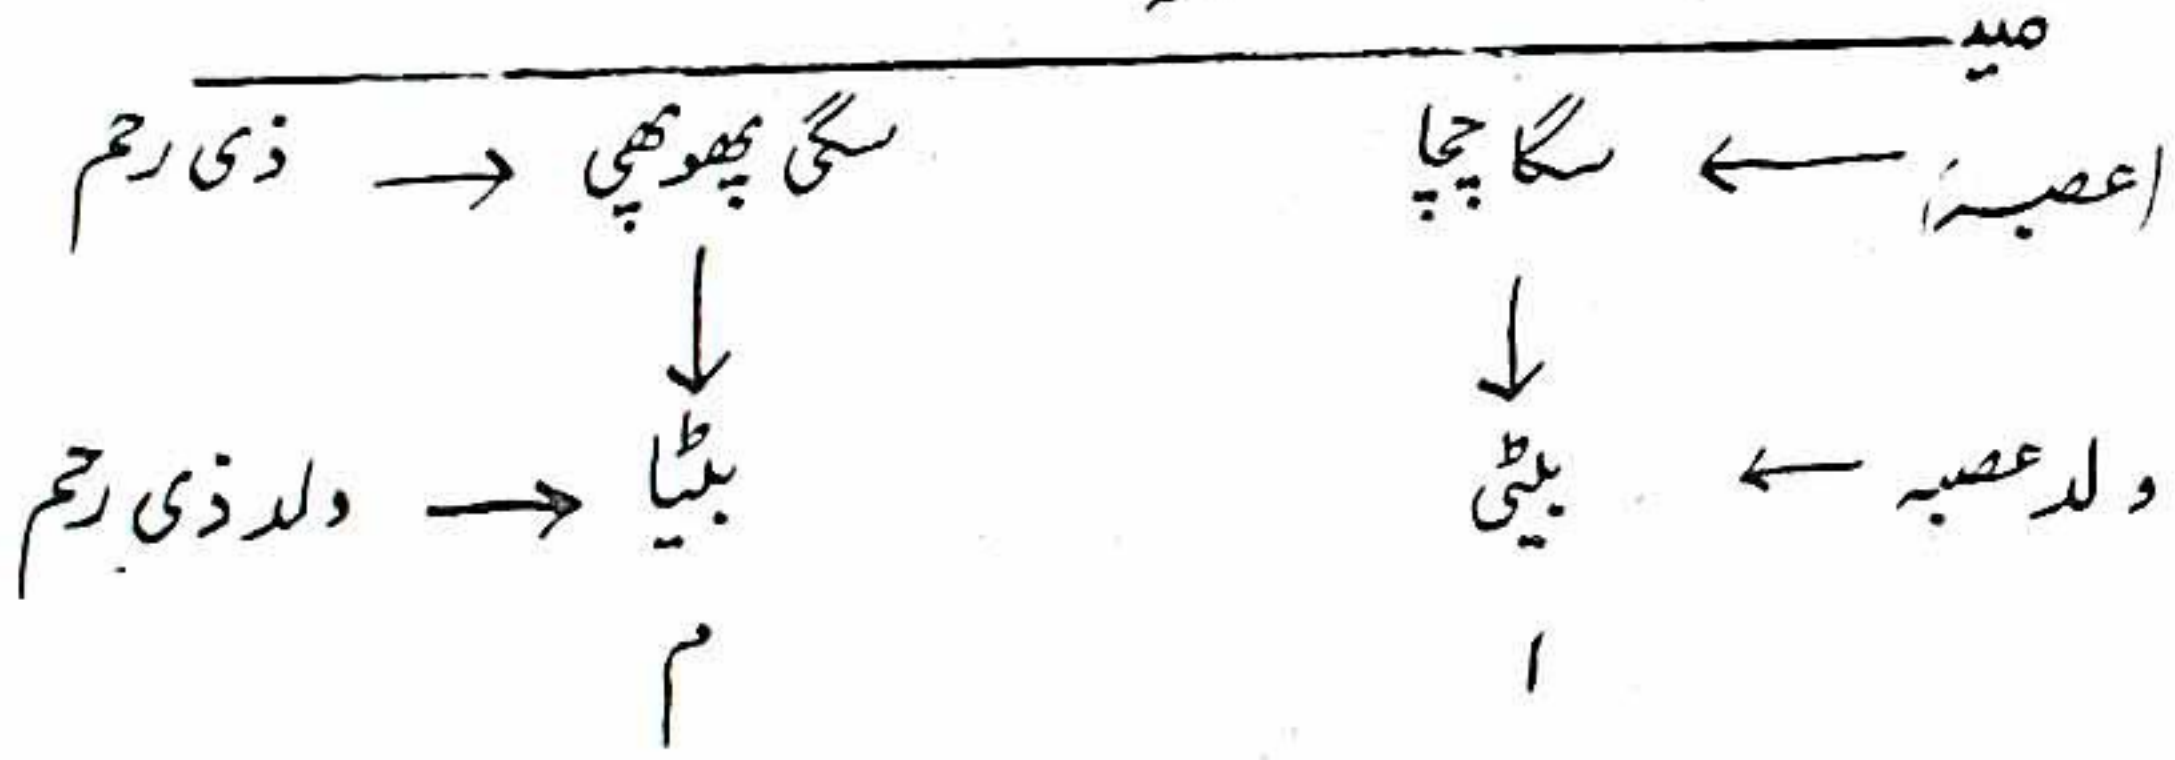 میـ
عصبہ ← سگا چچا سگی پھوپھی → ذی رحم
↓ ↓
ولد عصبہ ← بیٹی بیٹا → ولد ذی رحم
ا م